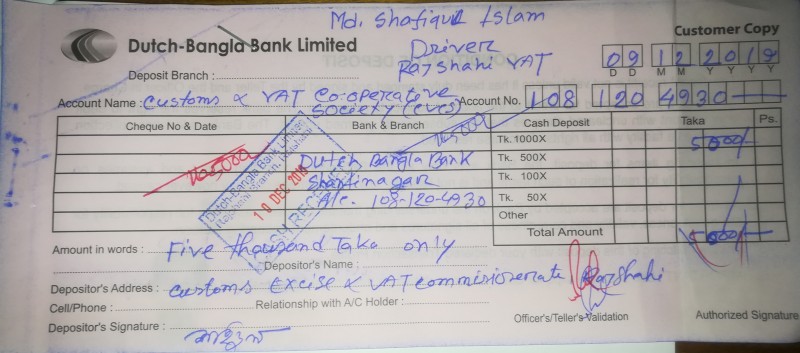 Md. Shafiqul Islam
Driver
Rajshahi VAT
Dutch-Bangla Bank Limited
Customer Copy
09 12 2019
D D M M Y Y Y Y
Deposit Branch :
Account Name : Customs & VAT Co-operative Society (CVCS)
Account No. 108 120 4930
Cheque No & Date Bank & Branch Cash Deposit Taka Ps.
Tk 5000 Tk 5000 Tk. 1000X 5000/
Dutch Bangla Bank Tk. 500X
Shantinagar Tk. 100X
A/c. 108-120-4930 Tk. 50X
Other
Total Amount 5000/
Dutch-Bangla Bank Limited
10 DEC
CASH RECEIVED
Amount in words : Five thousand Taka only
Depositor's Name :
Depositor's Address : Customs Excise & VAT commissionerate Rajshahi
Cell/Phone : Relationship with A/C Holder :
Depositor's Signature :
Officer's/Teller's Validation Authorized Signature